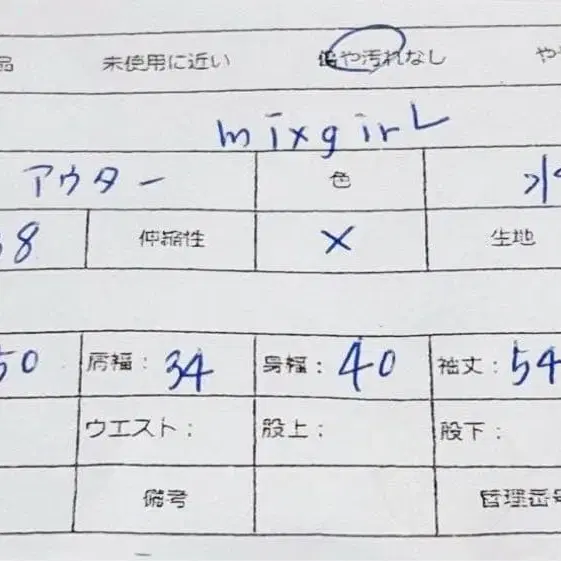 品 未使用に近い 傷や汚れなし やや
mixgirL
アウター 色
8 伸縮性 × 生地
50 肩幅: 34 身幅: 40 袖丈: 54
ウエスト: 股上: 股下:
備考 管理番号